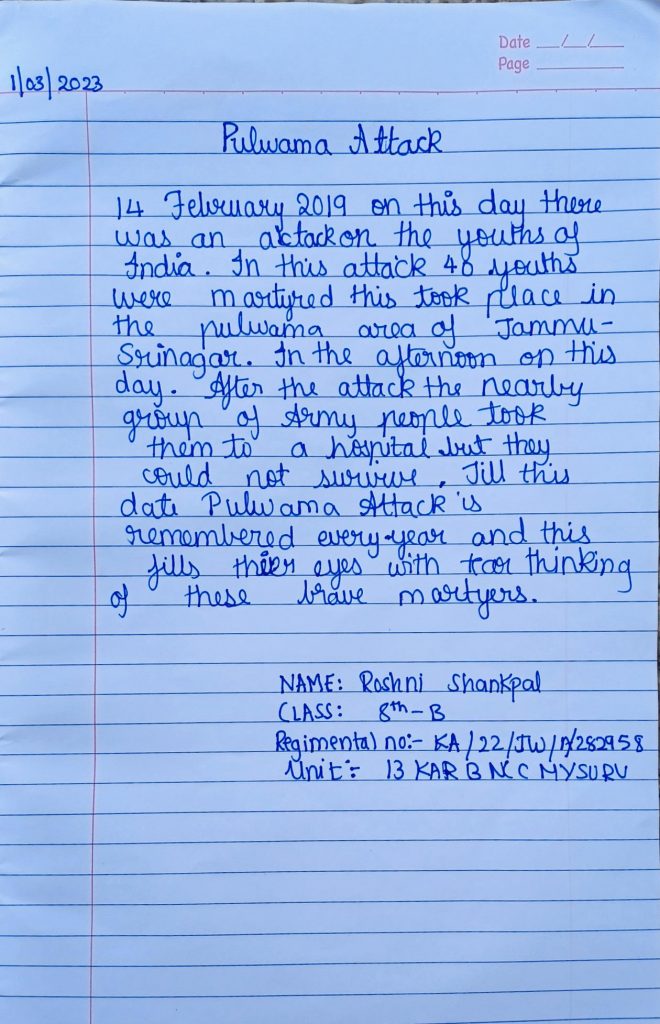 Date __/__/__
Page ______
1/03/2023
Pulwama Attack
14 February 2019 on this day there
was an attack on the youths of
India. In this attack 40 youths
were martyred this took place in
the pulwama area of Jammu-
Srinagar. In the afternoon on this
day. After the attack the nearby
group of Army people took
them to a hospital but they
could not survive. Till this
date Pulwama Attack is
remembered every-year and this
fills their eyes with tear thinking
of these brave martyers.
NAME: Roshni Shankpal
CLASS: 8th-B
Regimental no:- KA/22/JW/A/282958
Unit:- 13 KAR B NCC MYSURU